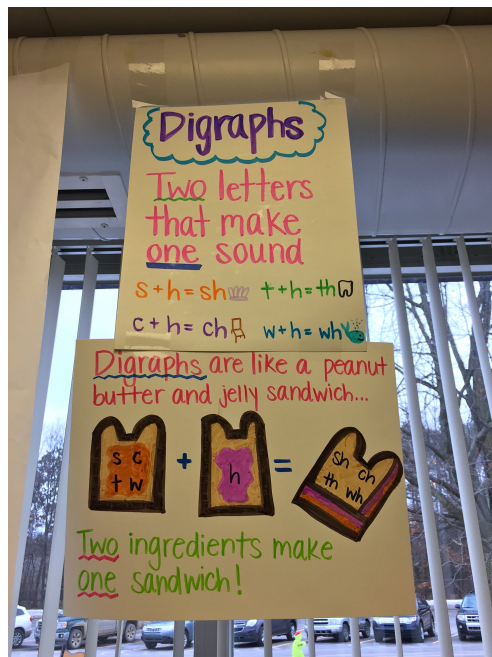 Digraphs
Two letters
that make
one sound
s + h = sh t + h = th
c + h = ch w + h = wh
Digraphs are like a peanut
butter and jelly sandwich...
s c
t w + h = sh ch
th wh
Two ingredients make
one sandwich!